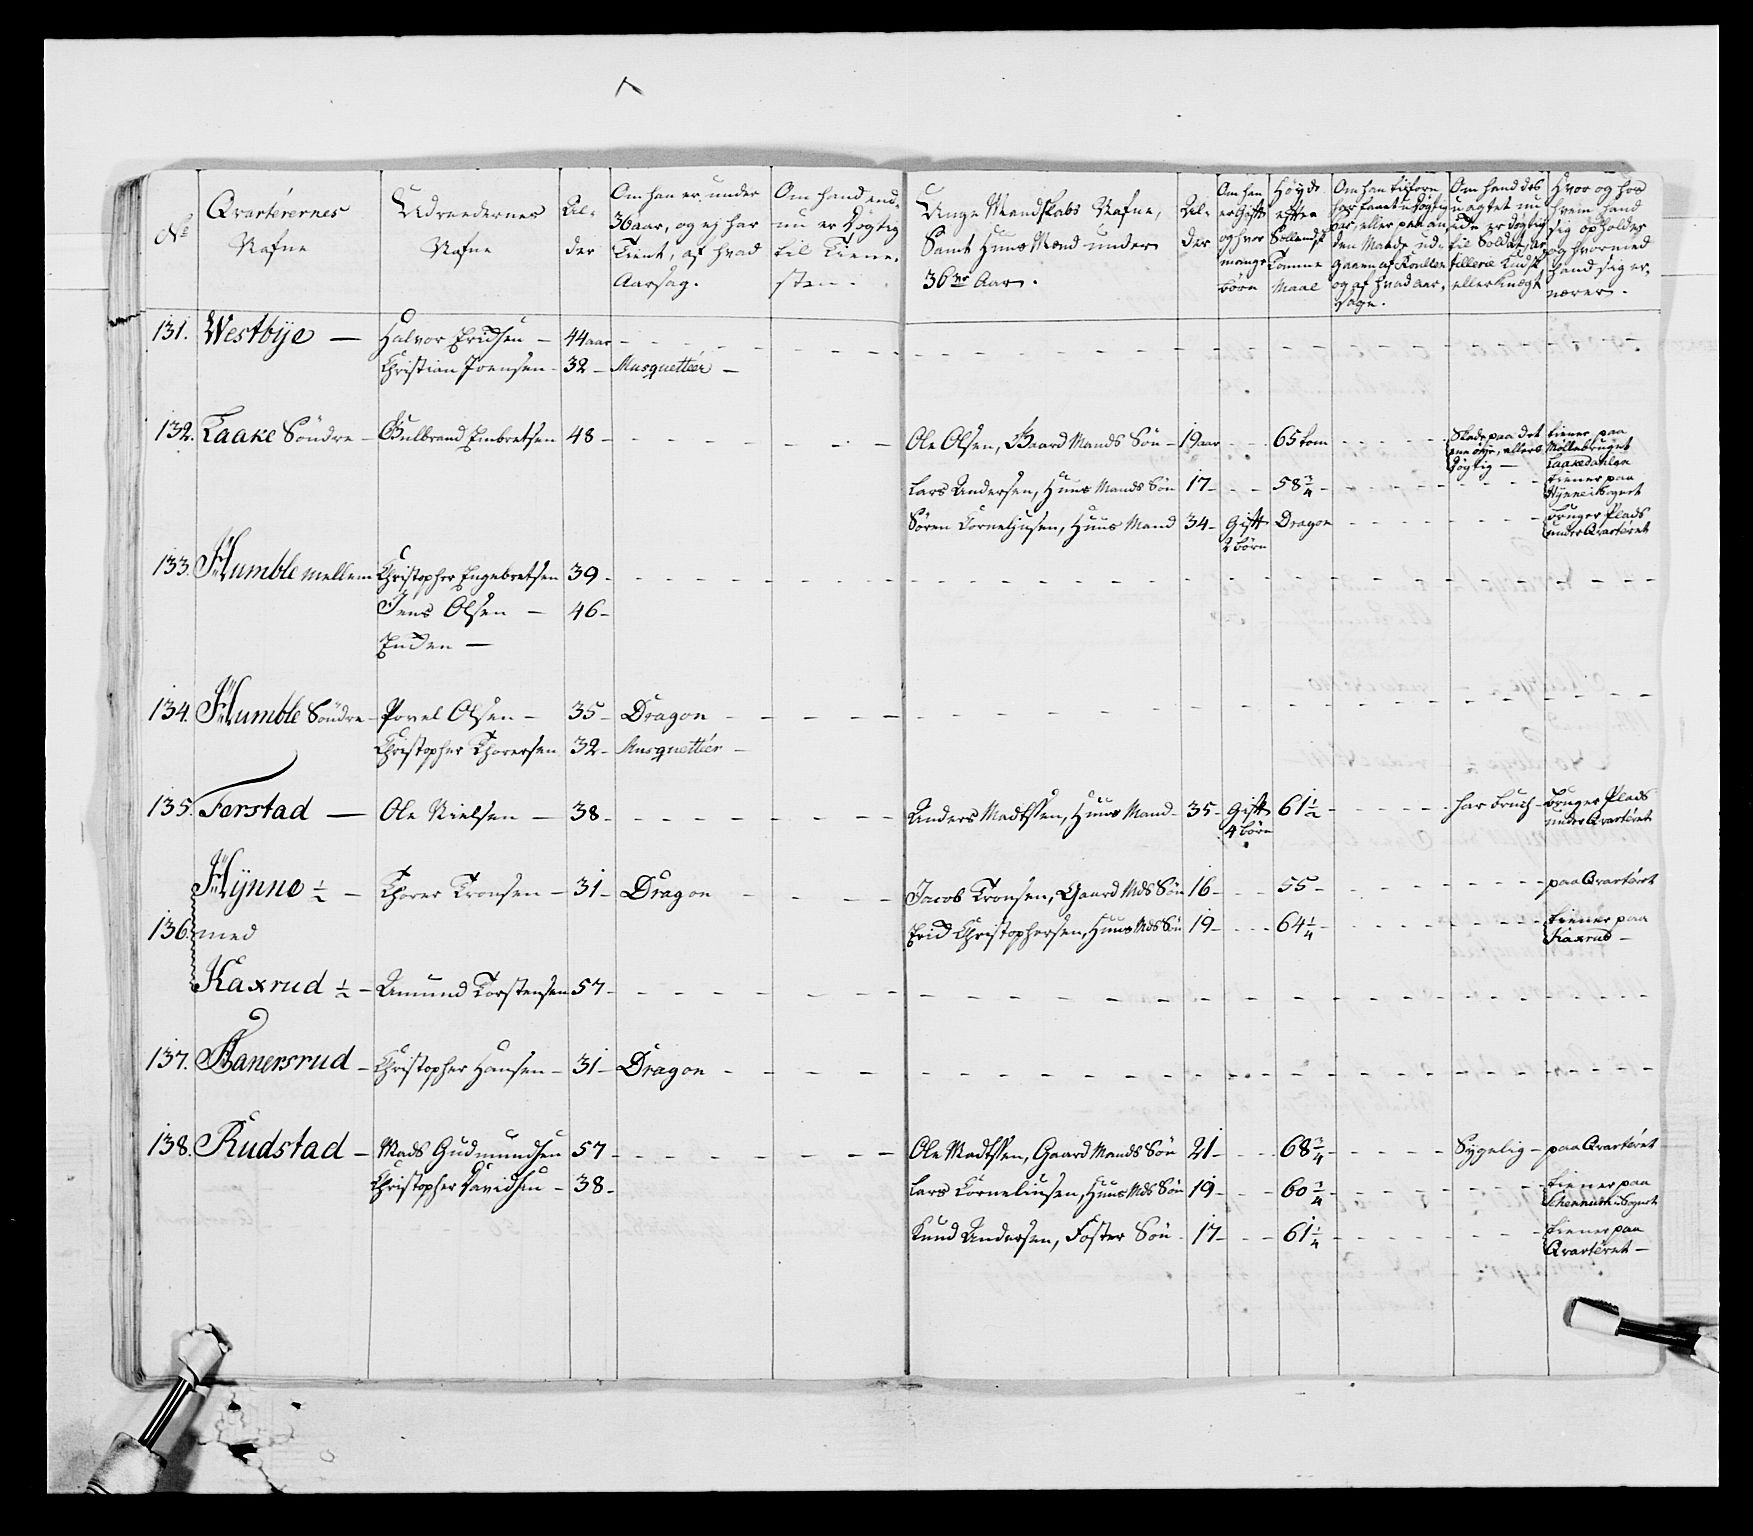 No
Qvarterernes
Nafne
Udreedernes
Nafne
Al-
der
Om han er under
36 aar, og ej har
Tient, af hvad
Aarsag.
Om hand end-
nu er dygtig
til Tiene-
sten.
Unge Mandskabs Nafne,
Samt Huus Mænd under
36 Aar.
Al-
der
Om han
er Gift
og hvor
mange
børn
Høyde
efter
Sællandsk
Tomme
Maal
Om han tilforn
og af hvad aar-
sage.
Om hand des
uagtet nu
er dygtig
til Soldat, Ar-
tillerie Kudsk
eller Knegt
Hvor og hos
hvem hand
sig opholder
og hvormed
hand sig er-
nærer.
131. Westbÿe — Halvor Eridsen — 44 aar
Christian Joensen - 32 - Musquetteer —
132. Laake Söndre - Gulbrand Embretsen 48 - Ole Olsen, Gaard Mands Søn - 19 aar 65 tom Skade paa det ene øye, ellers dygtig — tiener paa Møllebruget Laakedahlen
Lars Andersen, Huus Mands Søn 17 - 58 3/4 - tiener paa Hÿnne i Sognet
Søren Corneliusen, Huus Mand 34 - Gift 2 børn Dragon bruger Plads under Qvarteret
133. Humble mellem Christopher Engebretsen 39 -
Jens Olsen — 46 -
Enden —
134. Humble Söndre - Povel Olsen — 35 - Dragon
Christopher Thorersen 32 - Musquetteer —
135. Forstad — Ole Nielsen — 38 - Anders Madtssen, Huus Mand - 35 - Gift 4 børn 61 1/2 har bruch - bruger Plads under Qvarteret
Hÿnne 1/2 — Thorer Tronsen — 31 - Dragon Jacob Tronsen, Gaard Mds Søn 16 - 55 - paa Qvarteret
136. med Erid Christophersen, Huus Mds Søn 19 - 64 1/4 - tiener paa Kaxrud —
Kaxrud 1/2 — Amund Torstensen 57 -
137. Haneresrud - Christopher Hansen - 31 - Dragon
138. Rudstad — Mads Gudmundsen 57 - Ole Madtssen, Gaard Mands Søn 21 - 68 3/4 - Sygelig - paa Qvarteret
Christopher Davidsen - 38 - Lars Corneliusen, Huus Mds Søn 19 - 60 3/4 tiener paa Schennum i Sognet
Knud Andersen, Foster Søn - 17 - 61 1/4 tiener paa Qvarteret —